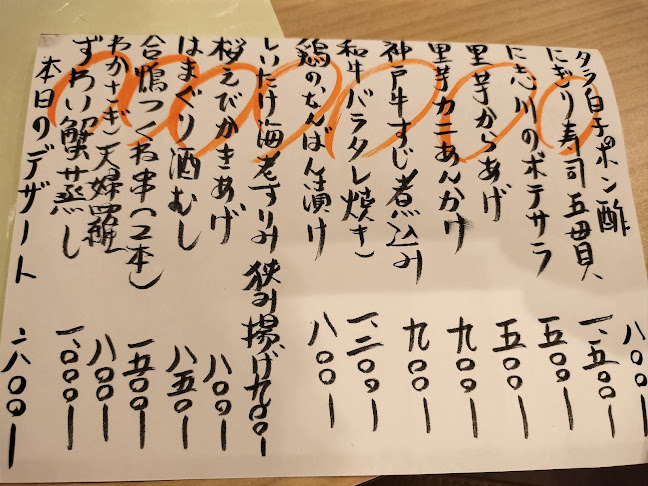 タラ白子ポン酢 八〇〇ー
にぎり寿司五貫 一、五〇〇ー
に志川のポテサラ 五〇〇ー
里芋からあげ 五〇〇ー
里芋カニあんかけ 九〇〇ー
神戸牛すじ煮込み 九〇〇ー
和牛バラタレ焼き 一、二〇〇ー
鶏のなんばん漬け 八〇〇ー
しいたけ海老すりみ狭み揚げ九〇〇ー
桜えびかきあげ 八〇〇ー
はまぐり酒むし 八五〇ー
合鴨つくね串(2本) 一五〇〇ー
わかさぎ天婦羅 八〇〇ー
ずわい蟹蒸し 一、〇〇〇ー
本日のデザート 六〇〇ー